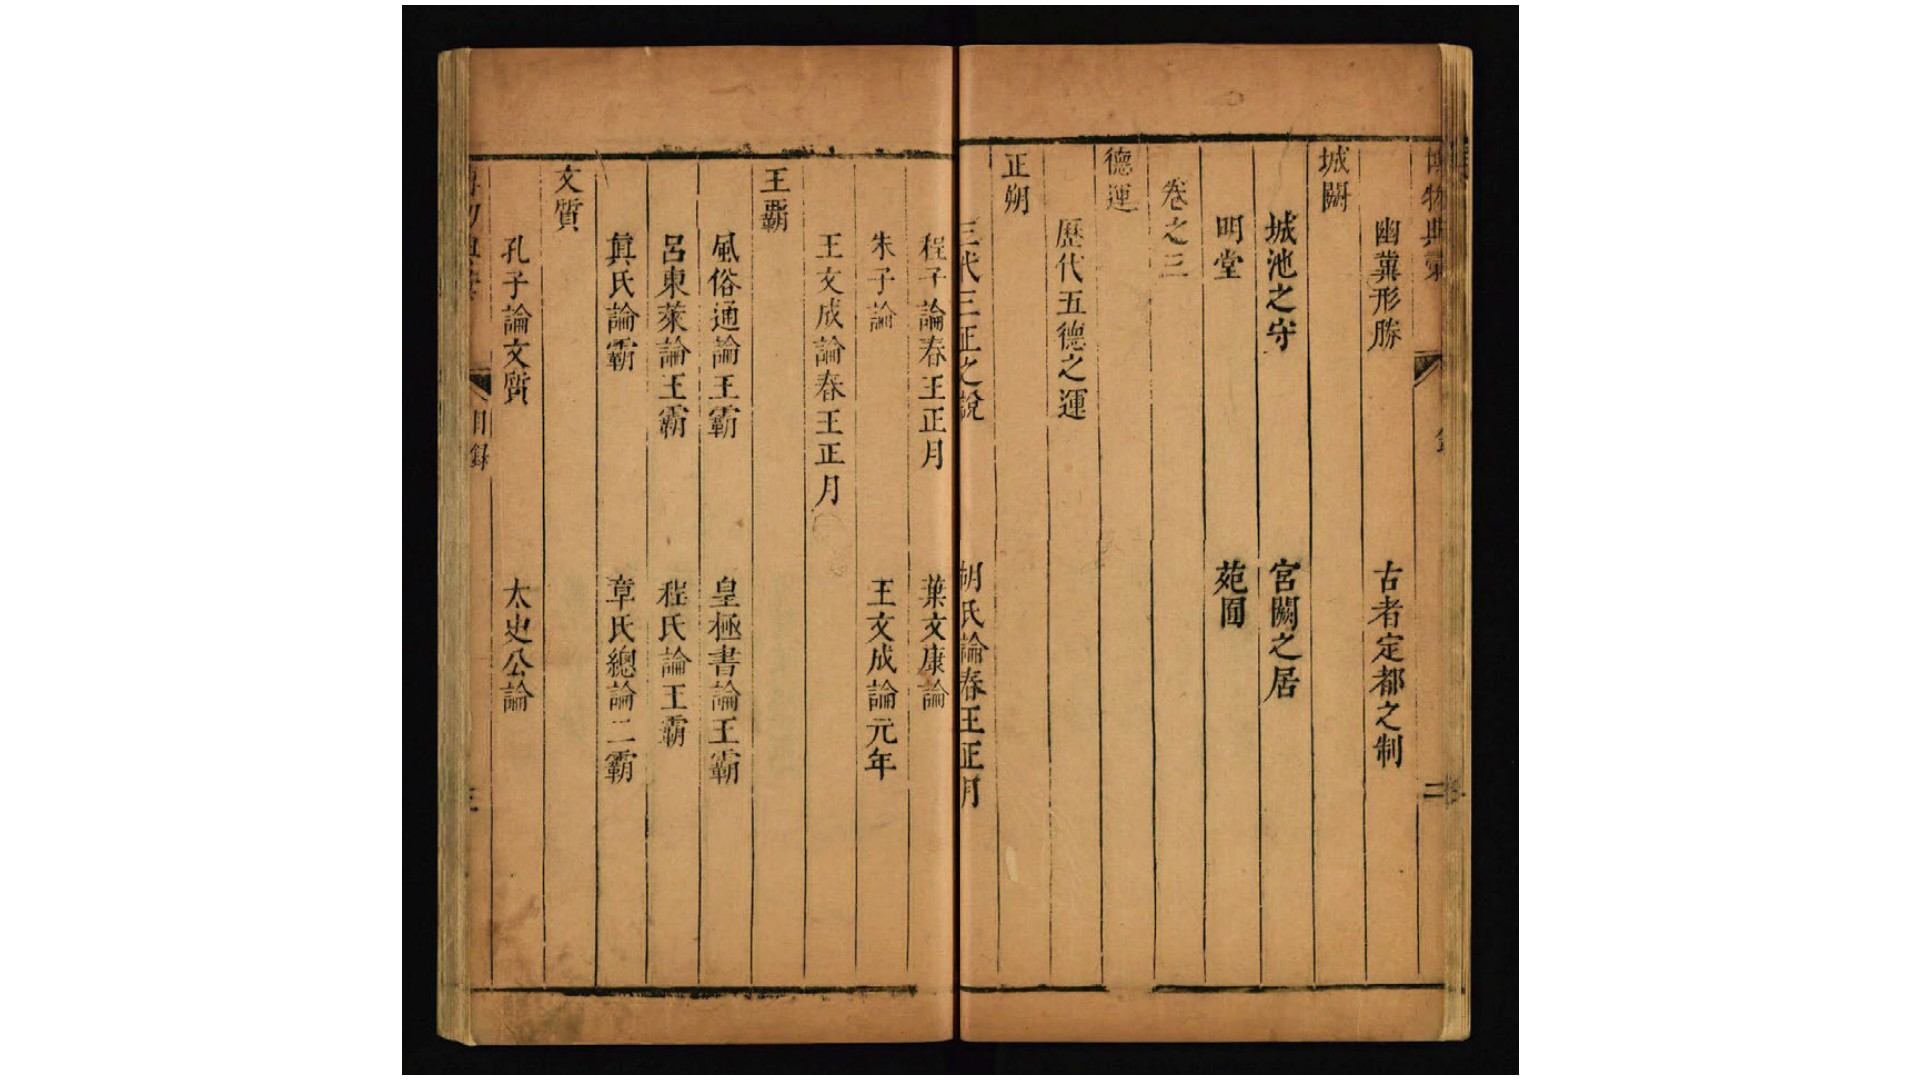 博物典彙
二
幽冀形勝 古者定都之制
城闕
城池之守 宮闕之居
明堂 苑囿
卷之三
德運
歷代五德之運
正朔
三代三正之說 胡氏論春王正月
程子論春王正月 葉文康論
朱子論 王文成論元年
王文成論春王正月
王霸
風俗通論王霸 皇極書論王霸
呂東萊論王霸 程氏論王霸
真氏論霸 章氏總論二霸
文質
孔子論文質 太史公論
目録
三